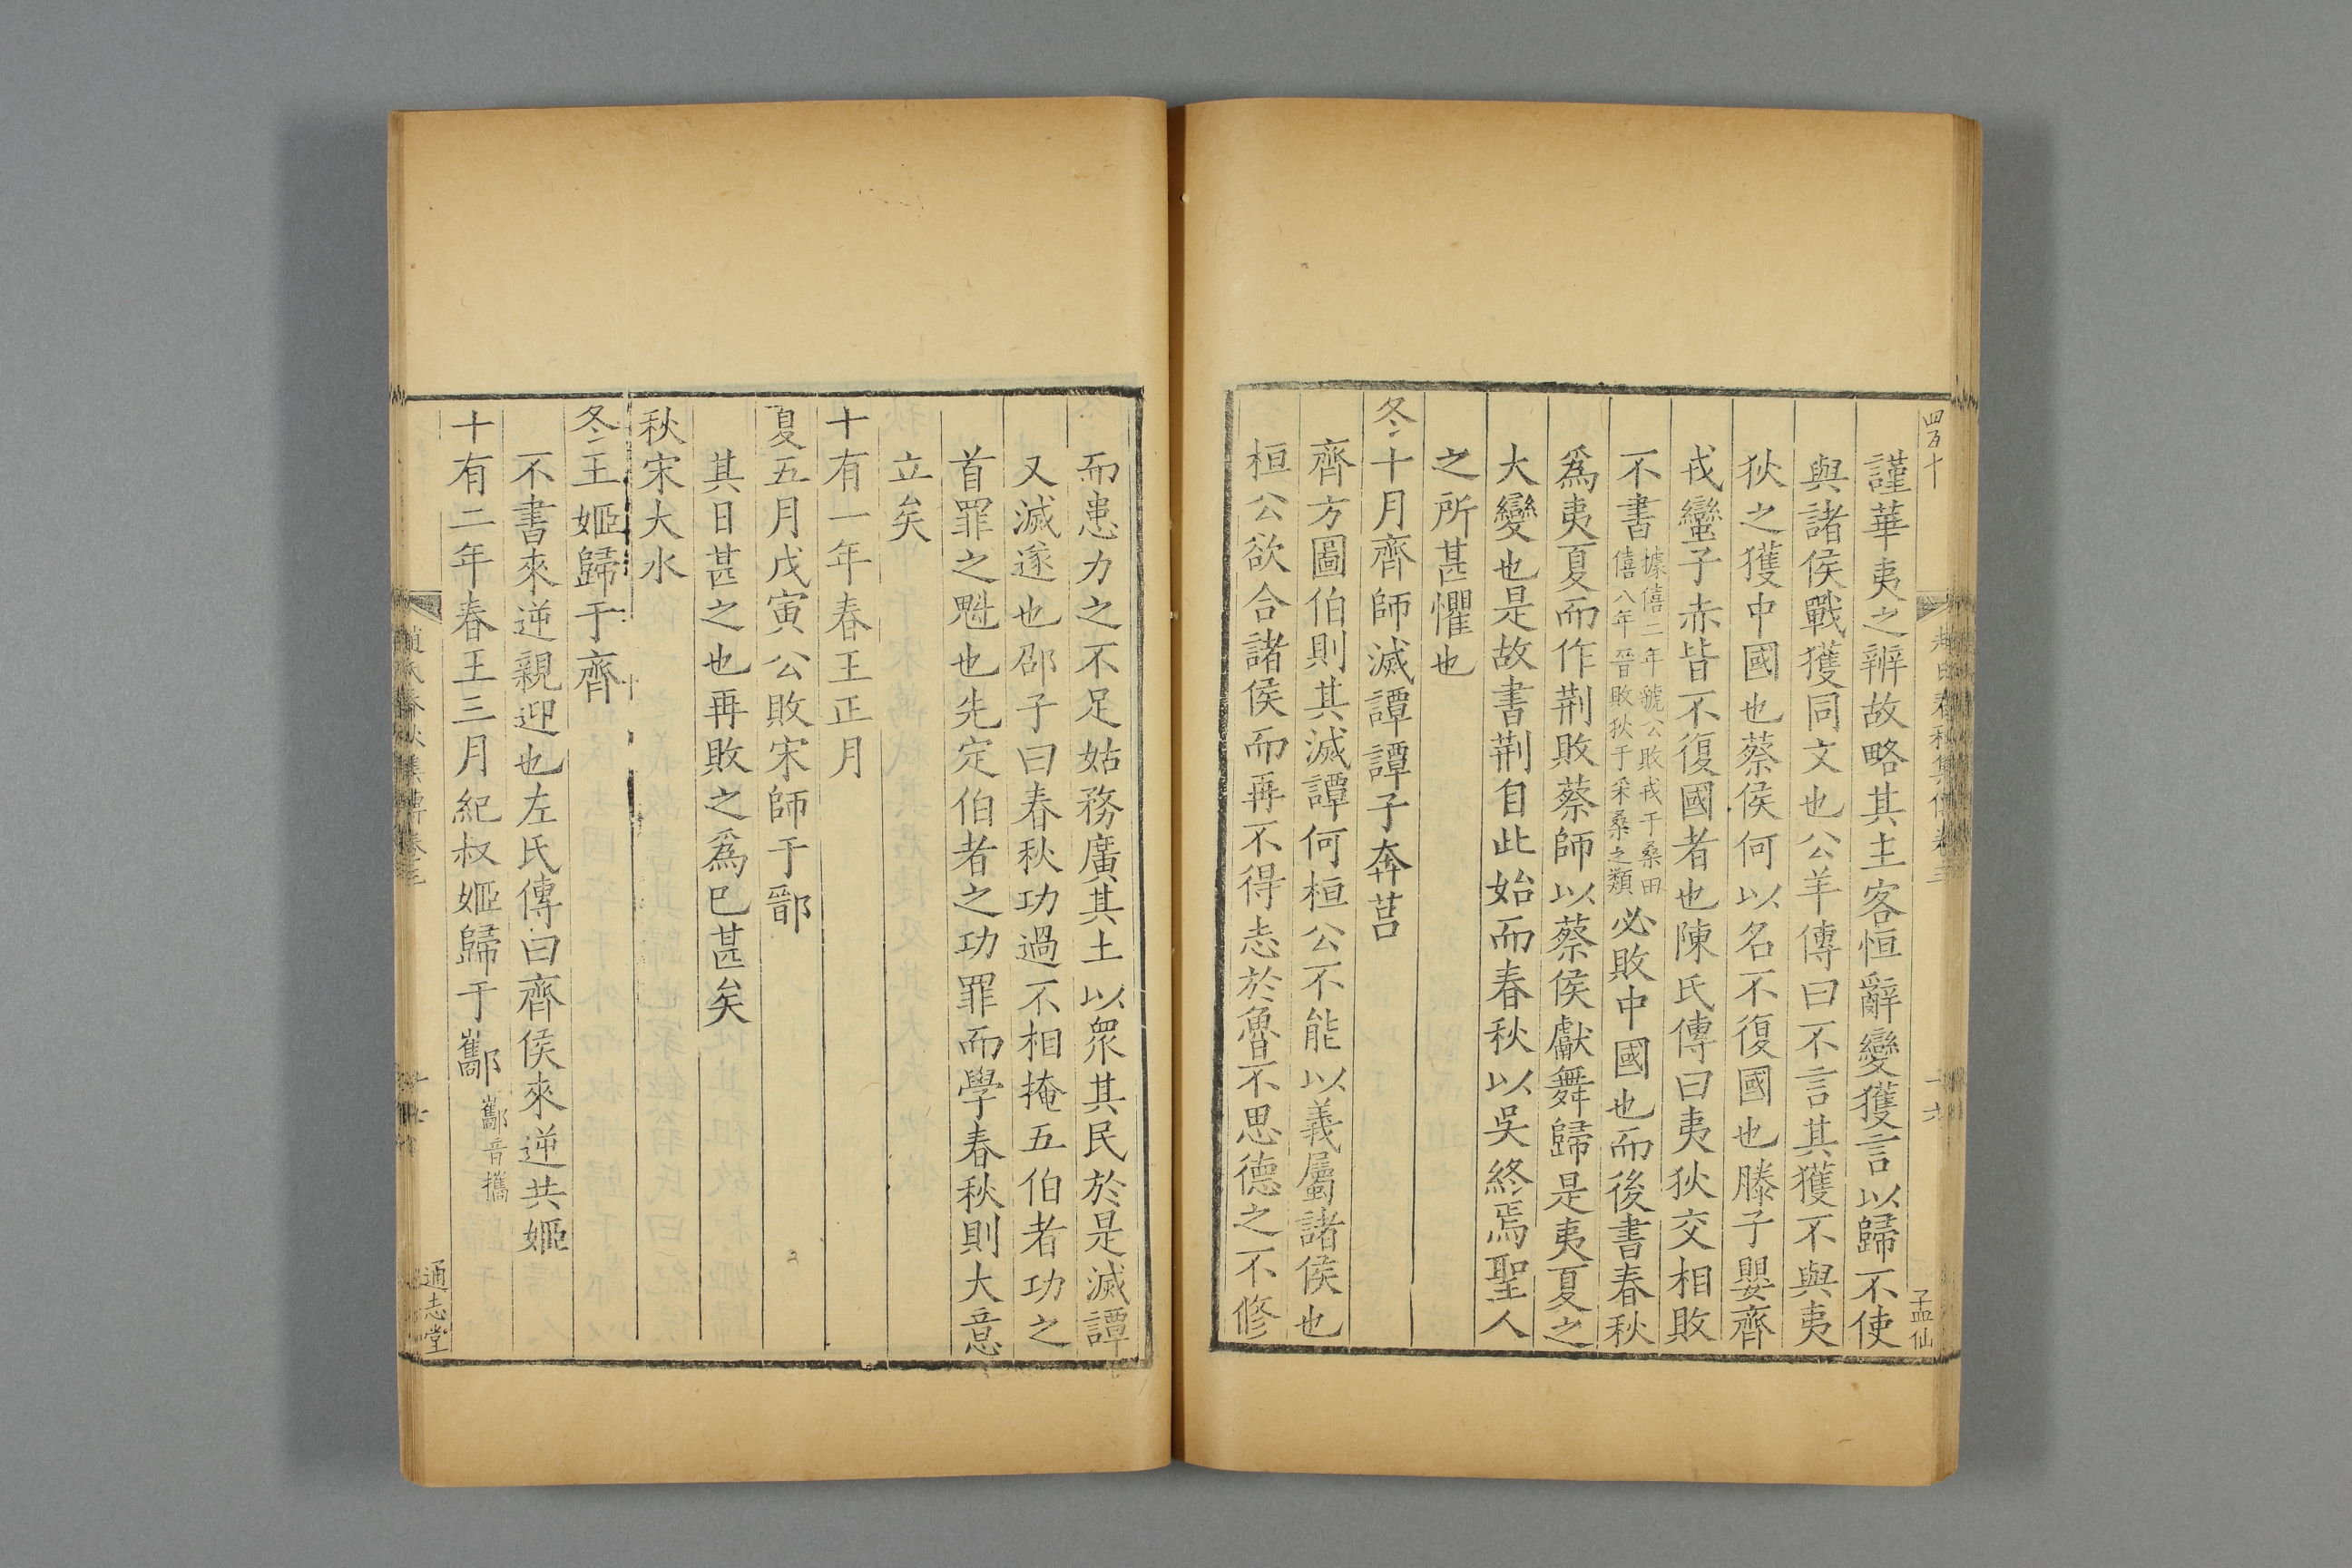 四百十
孟仙
謹華夷之辨故略其主客恒辭變獲言以歸不使
與諸侯戰獲同文也公羊傳曰不言其獲不與夷
狄之獲中國也蔡侯何以名不復國也滕子嬰齊
戎蠻子赤皆不復國者也陳氏傳曰夷狄交相敗
不書據僖二年虢公敗戎于桑田僖八年晉敗狄于采桑之類必敗中國也而後書春秋
爲夷夏而作荆敗蔡師以蔡侯獻舞歸是夷夏之
大變也是故書荆自此始而春秋以吳終焉聖人
之所甚懼也
冬十月齊師滅譚譚子奔莒
齊方圖伯則其滅譚何桓公不能以義屬諸侯也
桓公欲合諸侯而再不得志於魯不思德之不修
而患力之不足姑務廣其土以衆其民於是滅譚
又滅遂也邵子曰春秋功過不相掩五伯者功之
首罪之魁也先定伯者之功罪而學春秋則大意
立矣
十有一年春王正月
夏五月戊寅公敗宋師于鄑
其日甚之也再敗之爲已甚矣
秋宋大水
冬王姬歸于齊
不書來逆親迎也左氏傳曰齊侯來逆共姬
十有二年春王三月紀叔姬歸于酅酅音攜
趙氏春秋集傳卷三
通志堂